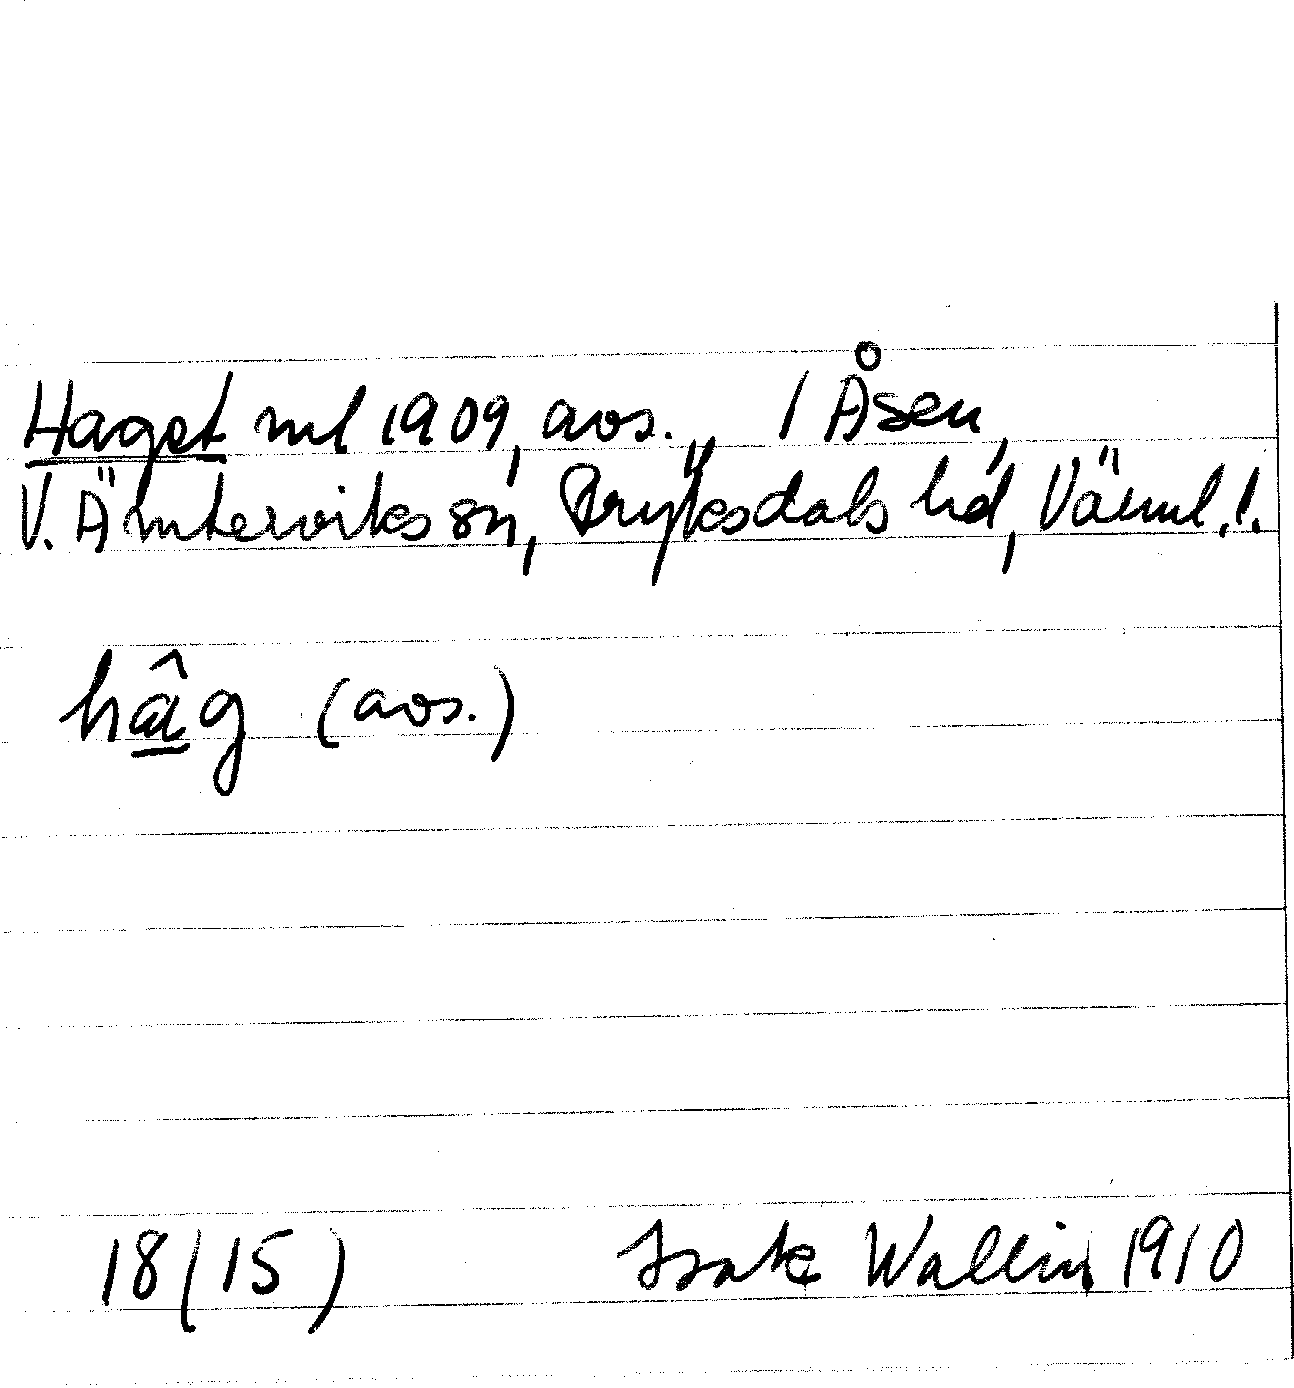 Haget ml 1909, avs. 1 Åsen,
V. Ämterviks sn, Fryksdals hd, Värml. l.
hâg (avs.)
18(15) Isak Wallin 1910